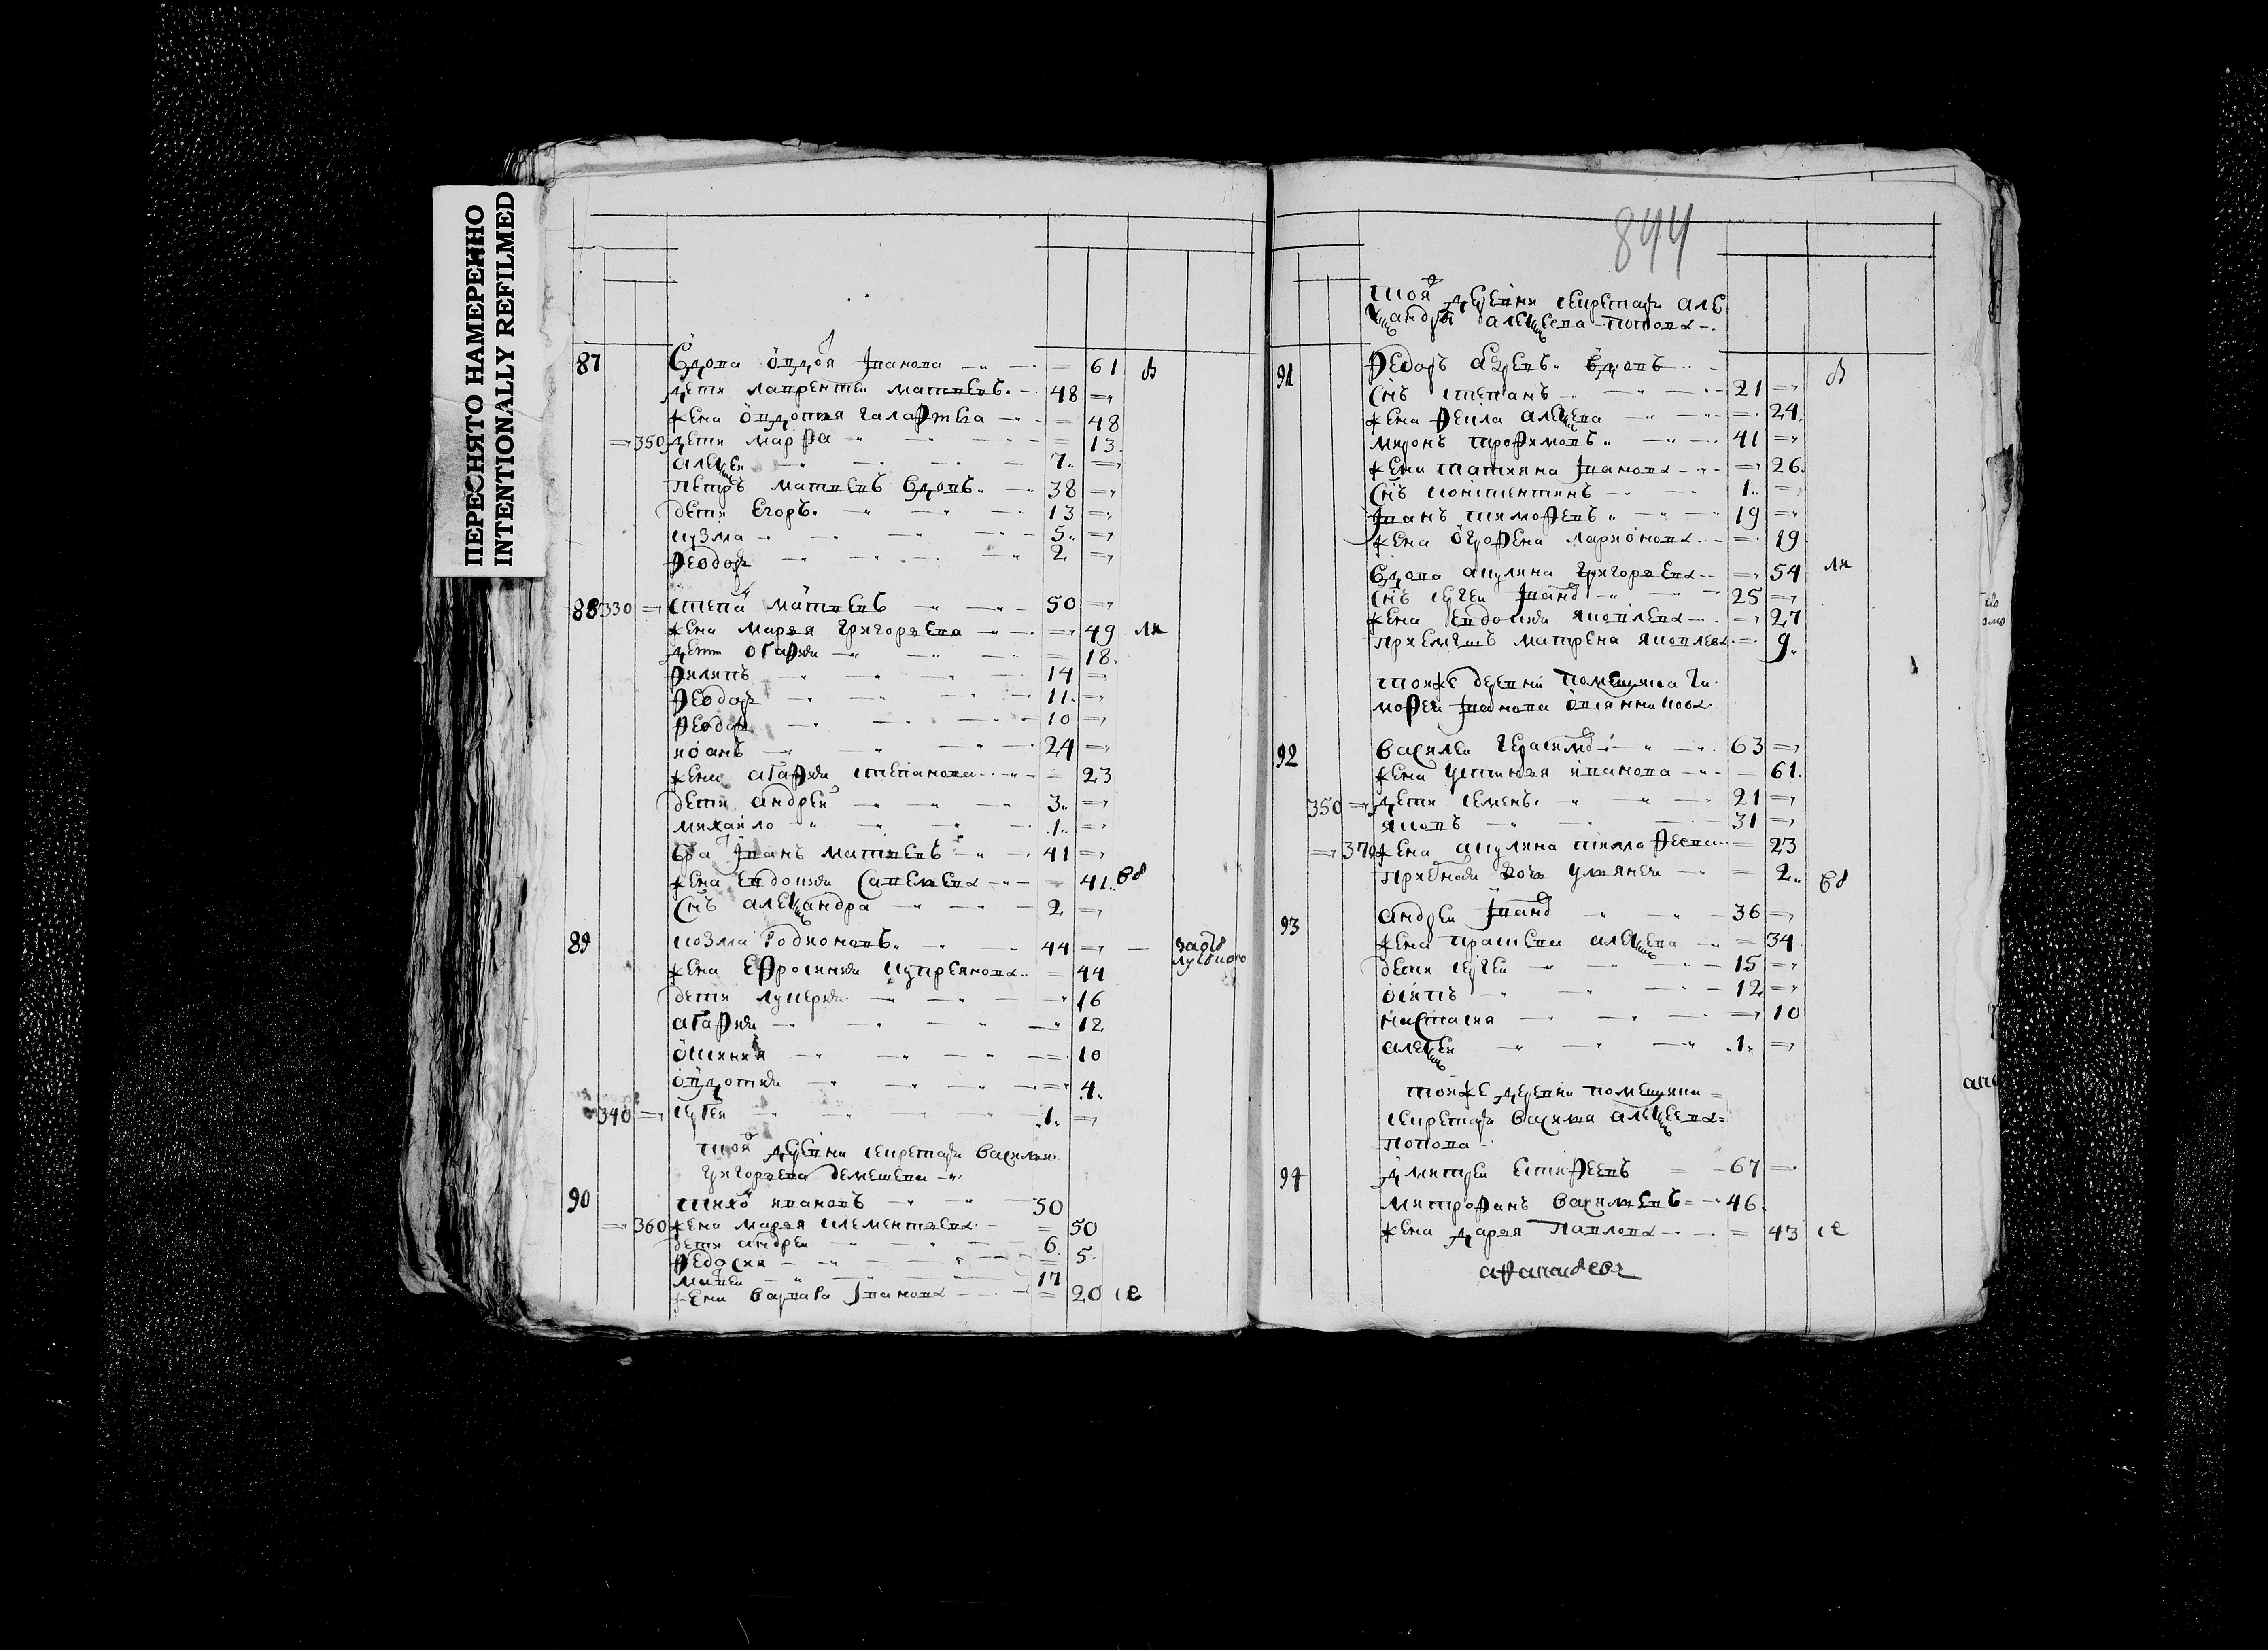 ПЕРЕСНЯТО НАМЕРЕННО
INTENTIONALLY REFILMED
844
87 Вдова Овдотя Iванова 61 в
дети лаврентеи матвеевъ 48
жена Овдотя 48
350 дети марфа 13
алексеи 7
петръ матвеевъ вдовъ 38
дети Егоръ 13
кузма 5
Феодоръ 2
88 330 степанъ матвеевъ 50
жена маря григорева 49 ли
дети огафия 18
филипъ 14
Феодоръ 11
Феодоръ 10
иоанъ 24
жена агафия степанова 23
дети андреи 3
михаило 1
братъ Iванъ матвеевъ 41
жена Евдокия савелева 41 вд
снъ александра 2
89 козма родионовъ 44
жена Ефросиния куприянова 44
дети лукерия 16
агафия 12
10
овдотия 4
340 сергеи 1
тои деревни секретаря василия
григорева демешева
90 тихонъ ивановъ 50
360 жена маря клементева 50
дети андреи 6
федосия 5
17
жена варвара Iванова 20 се
тои деревни секретаря алек
сандра алексеева попова
91 Федоръ вдовъ в
снъ степанъ 21
жена фекла алексеева 24
миронъ трофимовъ 41
жена татияна Iванова 26
снъ констентинъ 1
Iванъ тимофеевъ 19
жена огрофена ларионова 19
вдова акулина григорева 54 ли
снъ сергеи Iвановъ 25
жена евдокия яковлева 27
приемышъ матрена яковлева 9
тояже деревни помещика ти
мофея Iванова
92 василеи герасимовъ 63
жена устиня иванова 61
350 дети семенъ 21
яковъ 31
370 жена акулина тимофеева 23
дочь улиянея 2 вд
93 андреи Iвановъ 36
жена алексеева 34
дети сергеи 15
осипъ 12
настасия 10
алексеи 1
тояже деревни помещика
секретаря василия алексеева
попова
94 дмитреи естифеевъ 67
митрофанъ василевъ 46
жена даря павлова 43 се